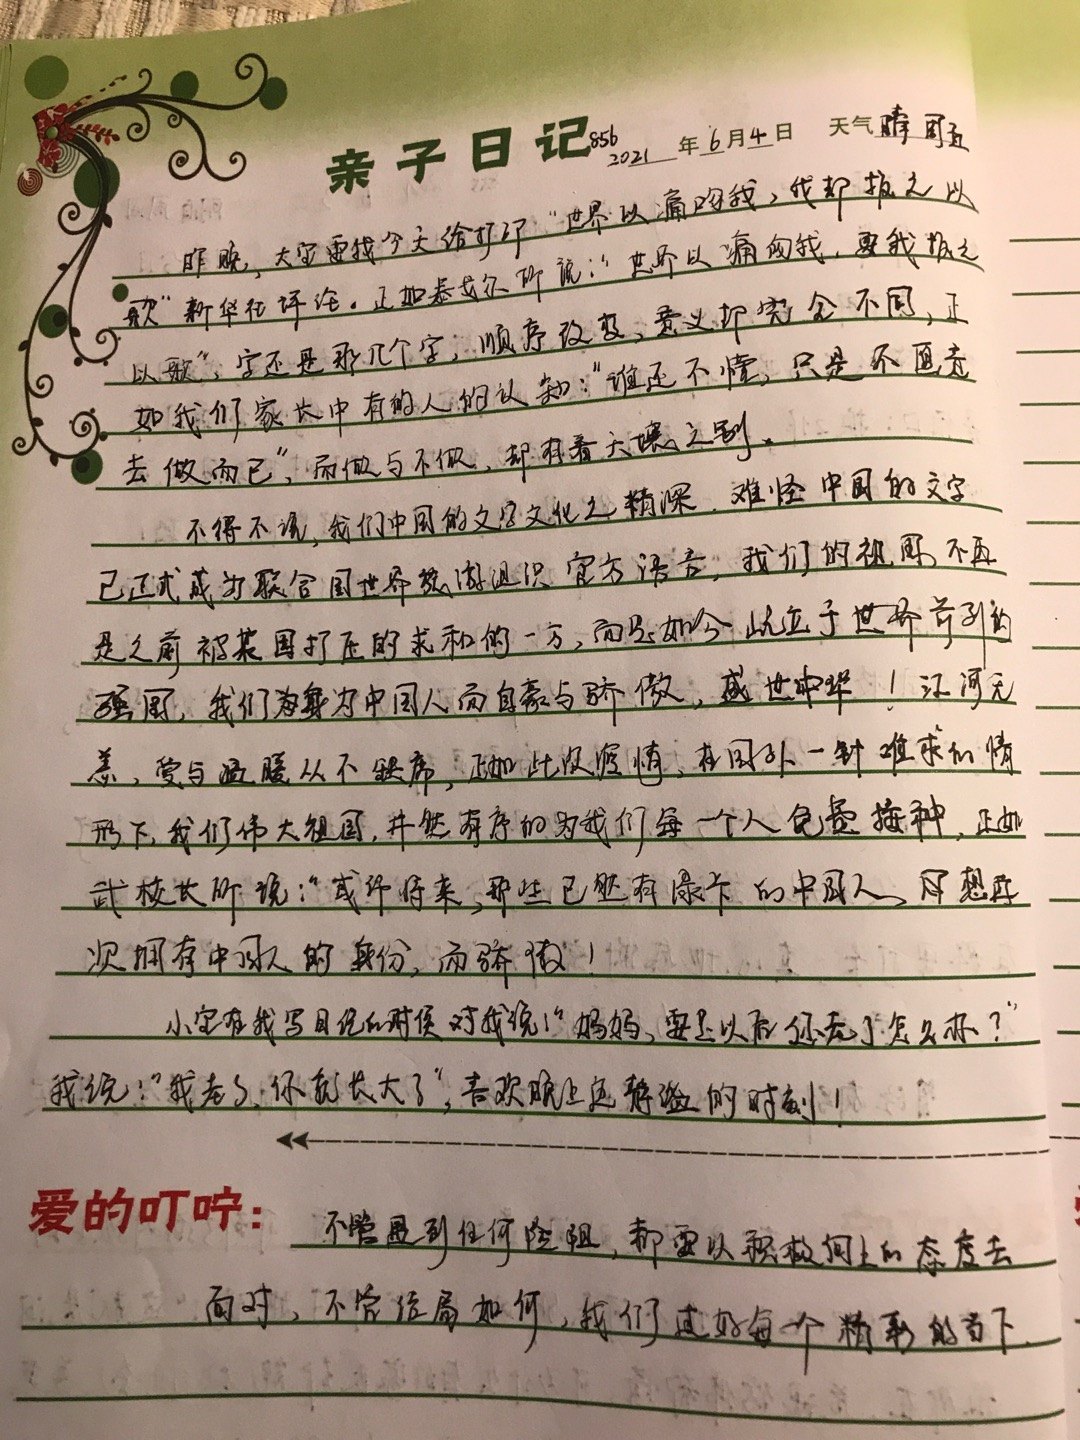 亲子日记 856 2021年6月4日 天气 晴 周五
昨晚，大宝要我今天给打印“世界以痛吻我，我却报之以
歌”新华社评论。正如泰戈尔所说：“世界以痛吻我，要我报之
以歌”，字还是那几个字，顺序改变，意义却完全不同，正
如我们家长中有的人的认知：“谁还不懂，只是不愿意
去做而已”，而做与不做，却有着天壤之别。
不得不说，我们中国的文字文化之精深，难怪中国的文字
已正式成为联合国世界旅游组织官方语言，我们的祖国不再
是之前被某国打压的求和的一方，而是如今屹立于世界前列的
强国，我们为身为中国人而自豪与骄傲，盛世中华！江河无
恙，爱与温暖从不缺席，正如此次疫情，在国外一针难求的情
形下，我们伟大祖国，井然有序的为我们每一个人免费接种，正如
武校长所说：“或许将来，那些已然有绿卡的中国人，会想再
次拥有中国人的身份，而骄傲！
小宝在我写日记的时候对我说：“妈妈，要是以后你老了怎么办？”
我说：“我老了，你就长大了”，喜欢晚上这静谧的时刻！
爱的叮咛：不管遇到任何险阻，都要以积极向上的态度去
面对，不管结局如何，我们过好每一个精彩的当下